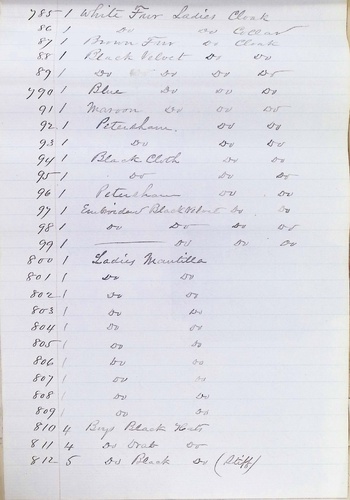 785 1 White Furr Ladies Cloak
86 1 Do Do Collar
87 1 Brown Furr Do Cloak
88 1 Black Velvet Do Do
89 1 Do Do Do Do
790 1 Blue Do Do Do
91 1 Maroon Do Do Do
92 1 Petersham Do Do
93 1 Do Do Do
94 1 Black Cloth Do Do
95 1 Do Do Do
96 1 Petersham Do Do
97 1 Embroider Black Velvet Do Do
98 1 Do Do Do Do
99 1 Do Do Do
800 1 Ladies Mantilla
801 1 Do Do
802 1 Do Do
803 1 Do Do
804 1 Do Do
805 1 Do Do
806 1 Do Do
807 1 Do Do
808 1 Do Do
809 1 Do Do
810 4 Boys Black Hats
811 4 Do Drab Do
812 5 Do Black Do (Stiff)